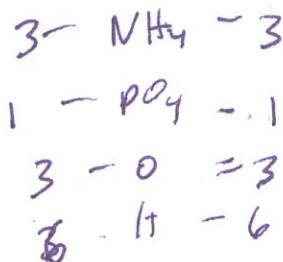 3 - NH4 - 3
1 - PO4 - 1
3 - O = 3
6 H - 6